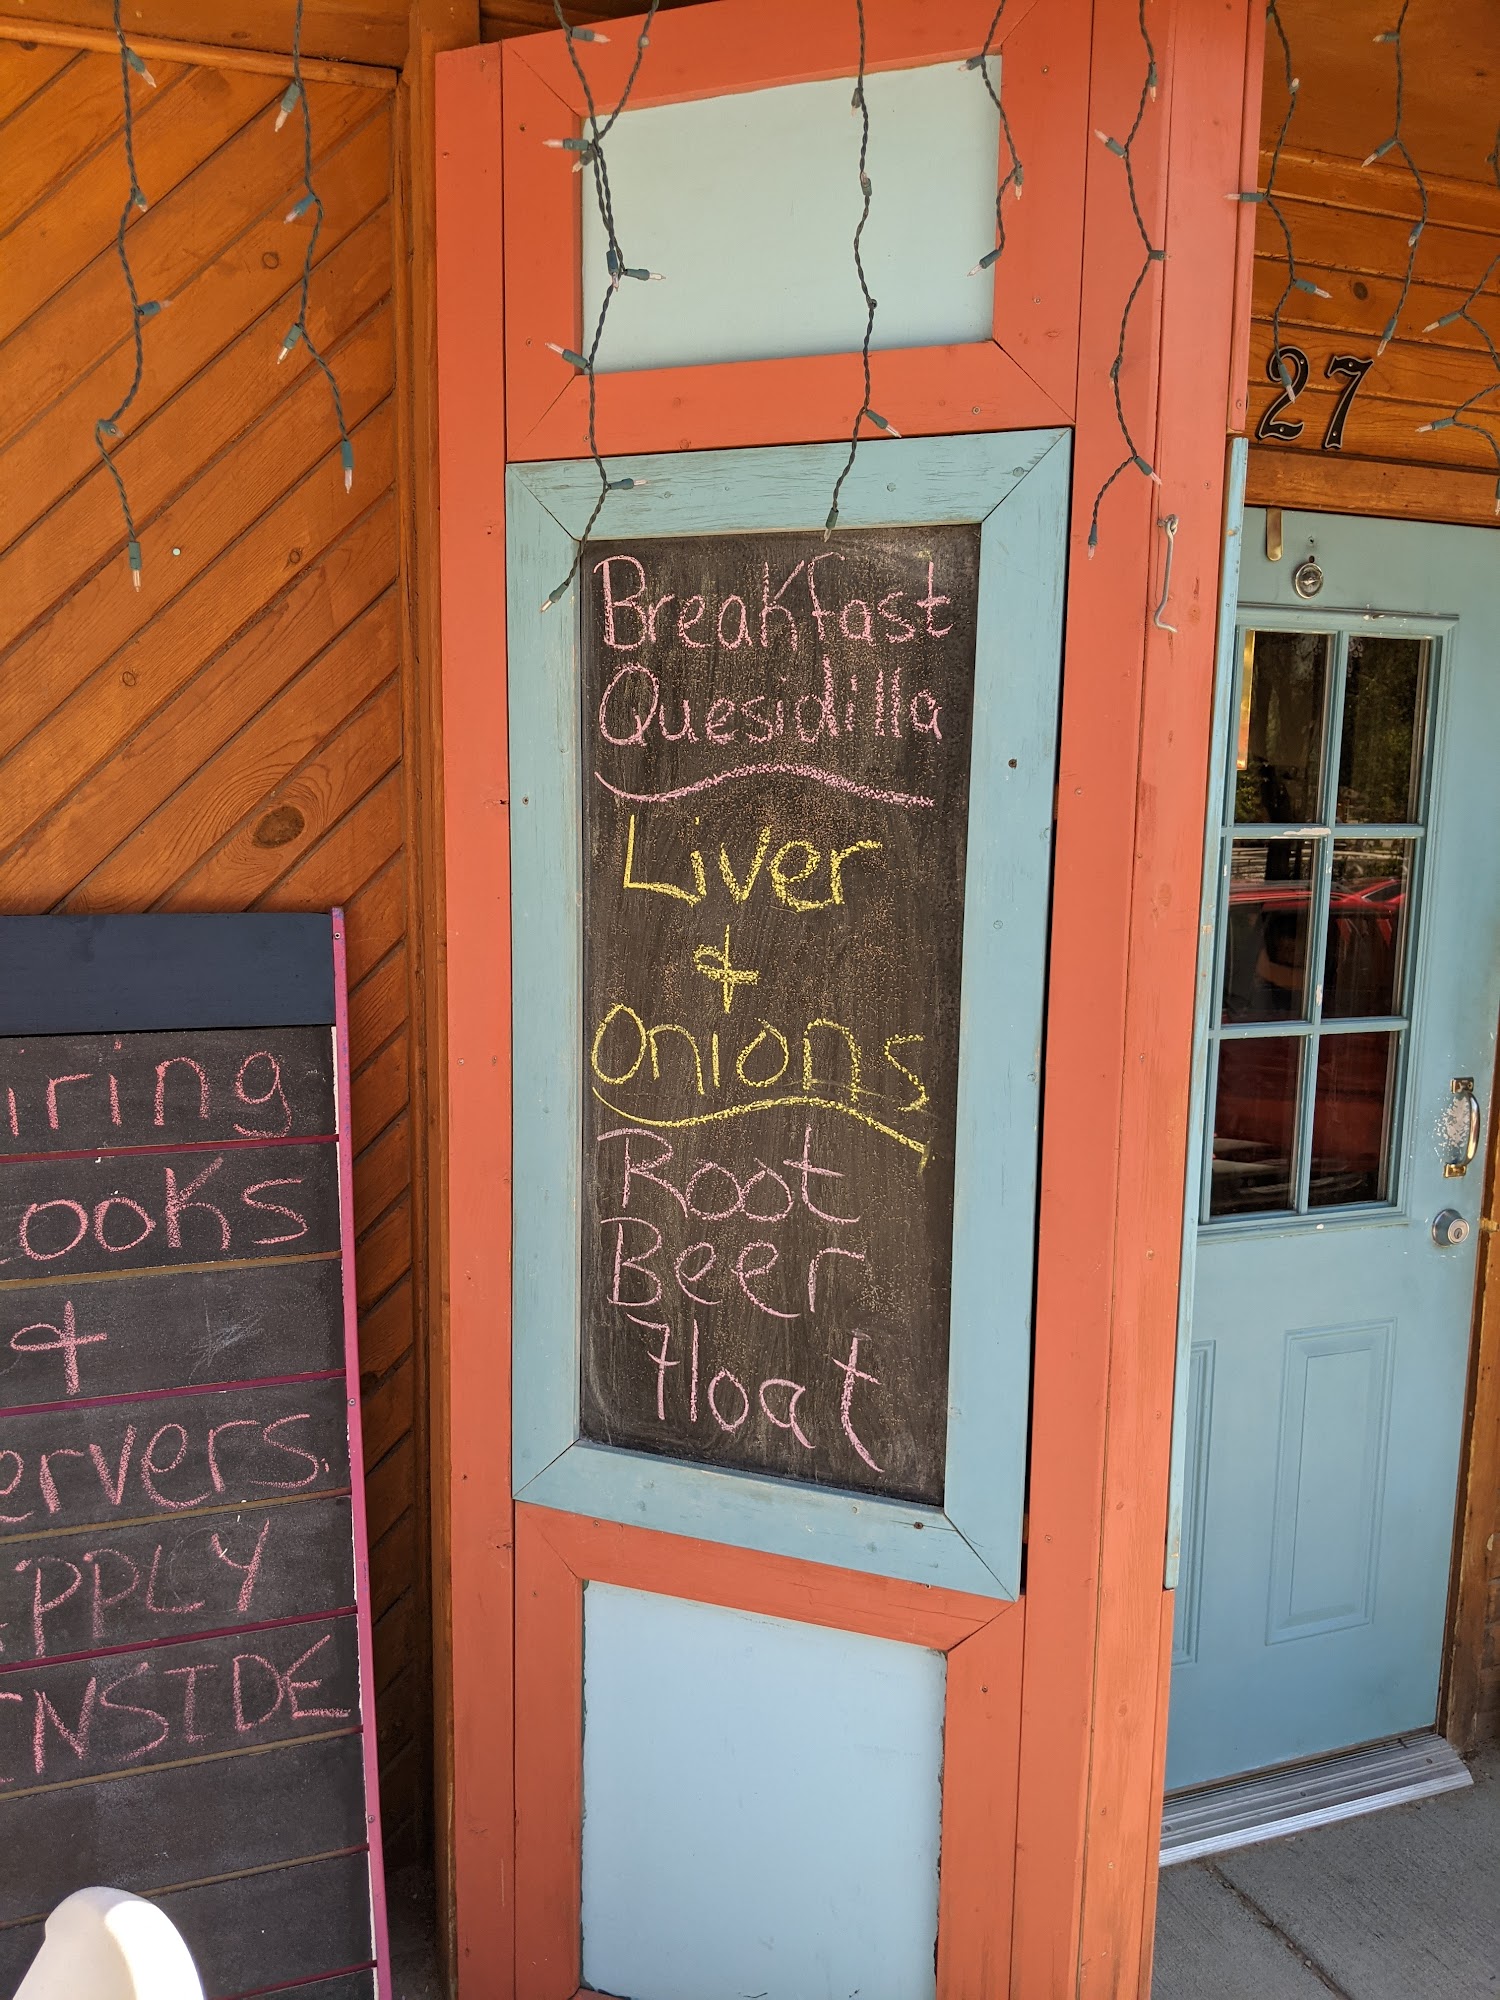 Breakfast
Quesidilla
Liver
&
Onions
Root
Beer
Float
iring
ooks
&
ervers.
PPLY
INSIDE
27